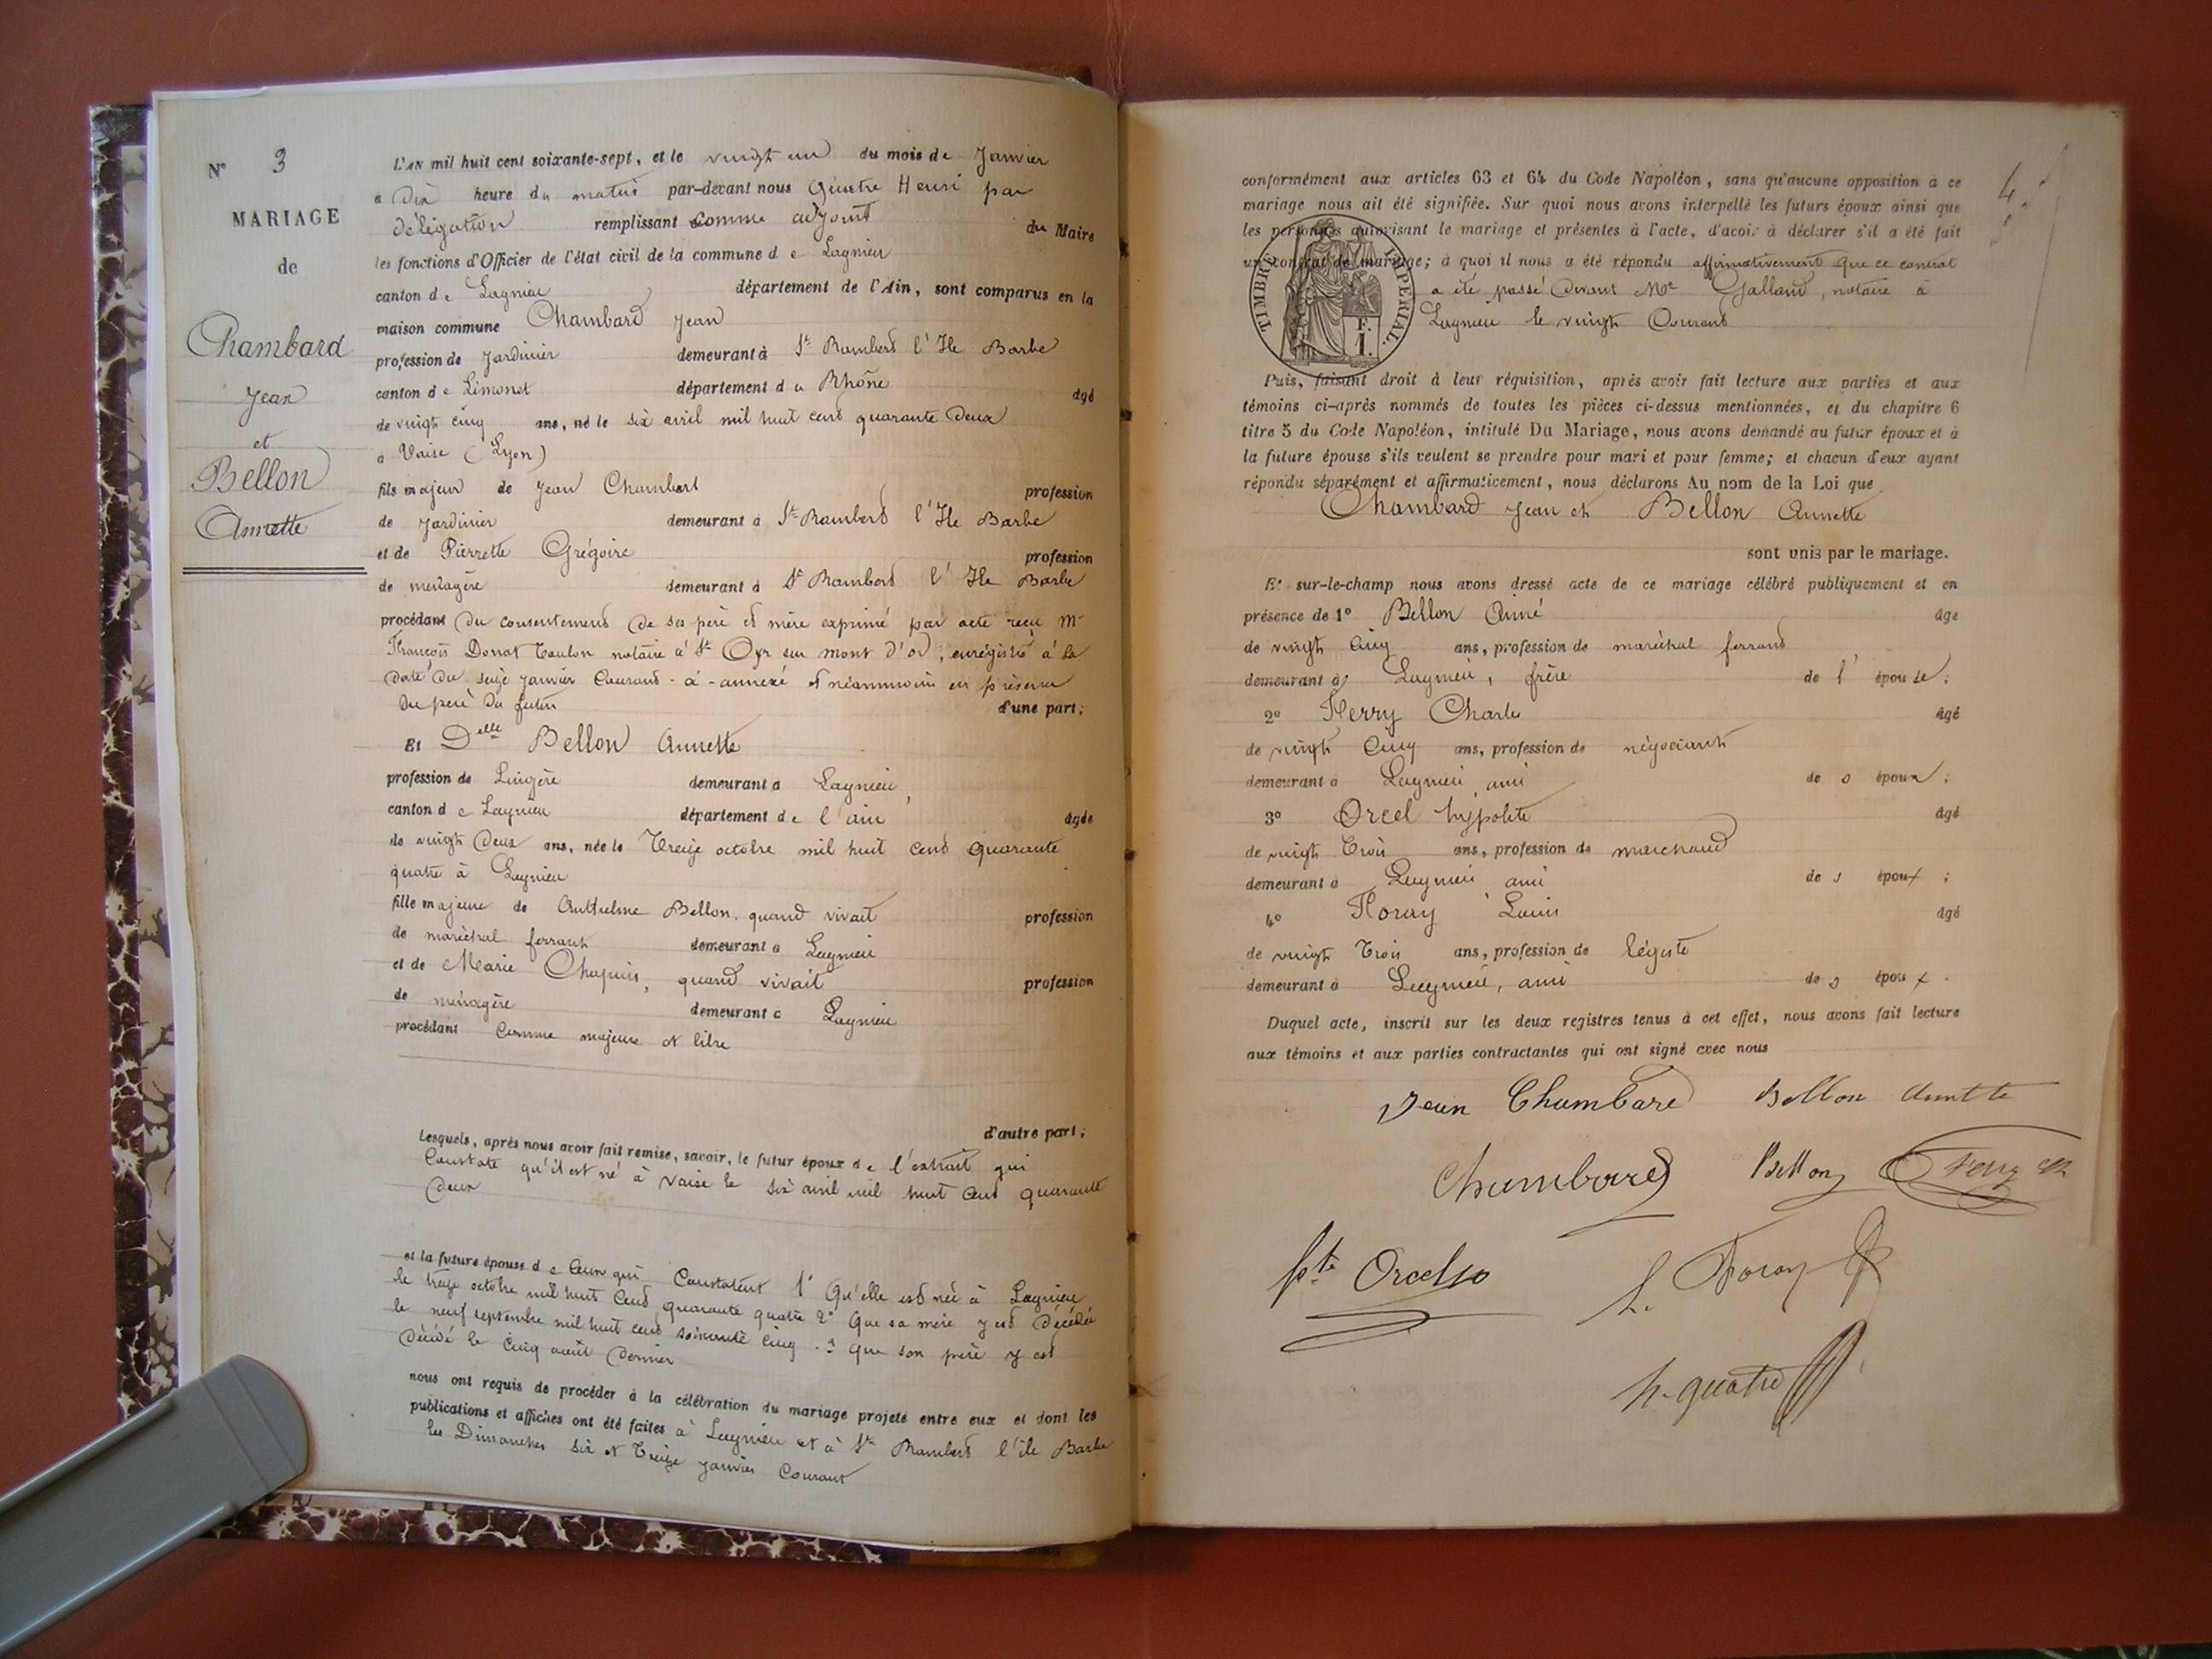 N° 3
MARIAGE
de
Chambard
Jean
et
Bellon
Annette
L'AN mil huit cent soixante-sept, et le vingt un du mois de Janvier
à dix heure du matin par-devant nous Quatre Henri par
délégation remplissant comme adjoint du Maire
les fonctions d'Officier de l'état civil de la commune de Lagnieu
canton de Lagnieu département de l'Ain, sont comparus en la
maison commune Chambard Jean
profession de Jardinier demeurant à St Rambert l'Ile Barbe
canton de Limonet département du Rhône âgé
de vingt cinq ans, né le six avril mil huit cent quarante deux
à Vaise (Lyon)
fils majeur de Jean Chambart profession
de jardinier demeurant à St Rambert l'Ile Barbe
et de Pierrette Grégoire profession
de ménagère demeurant à St Rambert l'Ile Barbe
procédant du consentement de ses père et mère exprimé par acte reçu Me
François Donat notaire à St Cyr au mont d'or, enregistré à la
date du seize janvier courant - ci-annexé et néanmoins en présence
du père du futur d'une part;
Et Delle Bellon Annette
profession de Lingère demeurant à Lagnieu,
canton de Lagnieu département de l'ain âgée
de vingt deux ans, née le Treize octobre mil huit cent quarante
quatre à Lagnieu
fille majeure de Anthelme Bellon, quand vivait profession
de maréchal ferrant demeurant à Lagnieu
et de Marie Chapuis, quand vivait profession
de ménagère demeurant à Lagnieu
procédant comme majeure et libre
d'autre part;
Lesquels, après nous avoir fait remise, savoir, le futur époux de l'extrait qui
constate qu'il est né à Vaise le six avril mil huit cent quarante
deux
et la future épouse de ceux qui constatent 1° Qu'elle est née à Lagnieu
le treize octobre mil huit cent quarante quatre 2° Que sa mère y est décédée
le neuf septembre mil huit cent soixante cinq. 3° Que son père y est
décédé le cinq août dernier
nous ont requis de procéder à la célébration du mariage projeté entre eux et dont les
publications et affiches ont été faites à Lagnieu et à St Rambert l'ile Barbe
les Dimanches six et Treize janvier courant
4.
conformément aux articles 63 et 64 du Code Napoléon, sans qu'aucune opposition à ce
mariage nous ait été signifiée. Sur quoi nous avons interpellé les futurs époux ainsi que
les personnes autorisant le mariage et présentes à l'acte, d'avoir à déclarer s'il a été fait
un contrat de mariage; à quoi il nous a été répondu affirmativement que ce contrat
a été passé devant Me Galland, notaire à
Lagnieu le vingt courant
TIMBRE IMPERIAL.
F.
1.
Puis, faisant droit à leur réquisition, après avoir fait lecture aux parties et aux
témoins ci-après nommés de toutes les pièces ci-dessus mentionnées, et du chapitre 6
titre 5 du Code Napoléon, intitulé Du Mariage, nous avons demandé au futur époux et à
la future épouse s'ils veulent se prendre pour mari et pour femme; et chacun d'eux ayant
répondu séparément et affirmativement, nous déclarons Au nom de la Loi que
Chambard Jean et Bellon Annette
sont unis par le mariage.
Et sur-le-champ nous avons dressé acte de ce mariage célébré publiquement et en
présence de 1° Bellon Aimé âgé
de vingt cinq ans, profession de maréchal ferrant
demeurant à Lagnieu, frère de l'épouse;
2° Ferry Charles âgé
de vingt cinq ans, profession de négociant
demeurant à Lagnieu ami des époux;
3° Orcel hypolite âgé
de vingt trois ans, profession de marchand
demeurant à Lagnieu ami des époux;
4° Floray Louis âgé
de vingt trois ans, profession de légiste
demeurant à Lagnieu, ami des époux.
Duquel acte, inscrit sur les deux registres tenus à cet effet, nous avons fait lecture
aux témoins et aux parties contractantes qui ont signé avec nous
Jean Chambard Bellon Annette
Chambard Bellon Ferry
hte Orcel
L. Floray
h. quatre